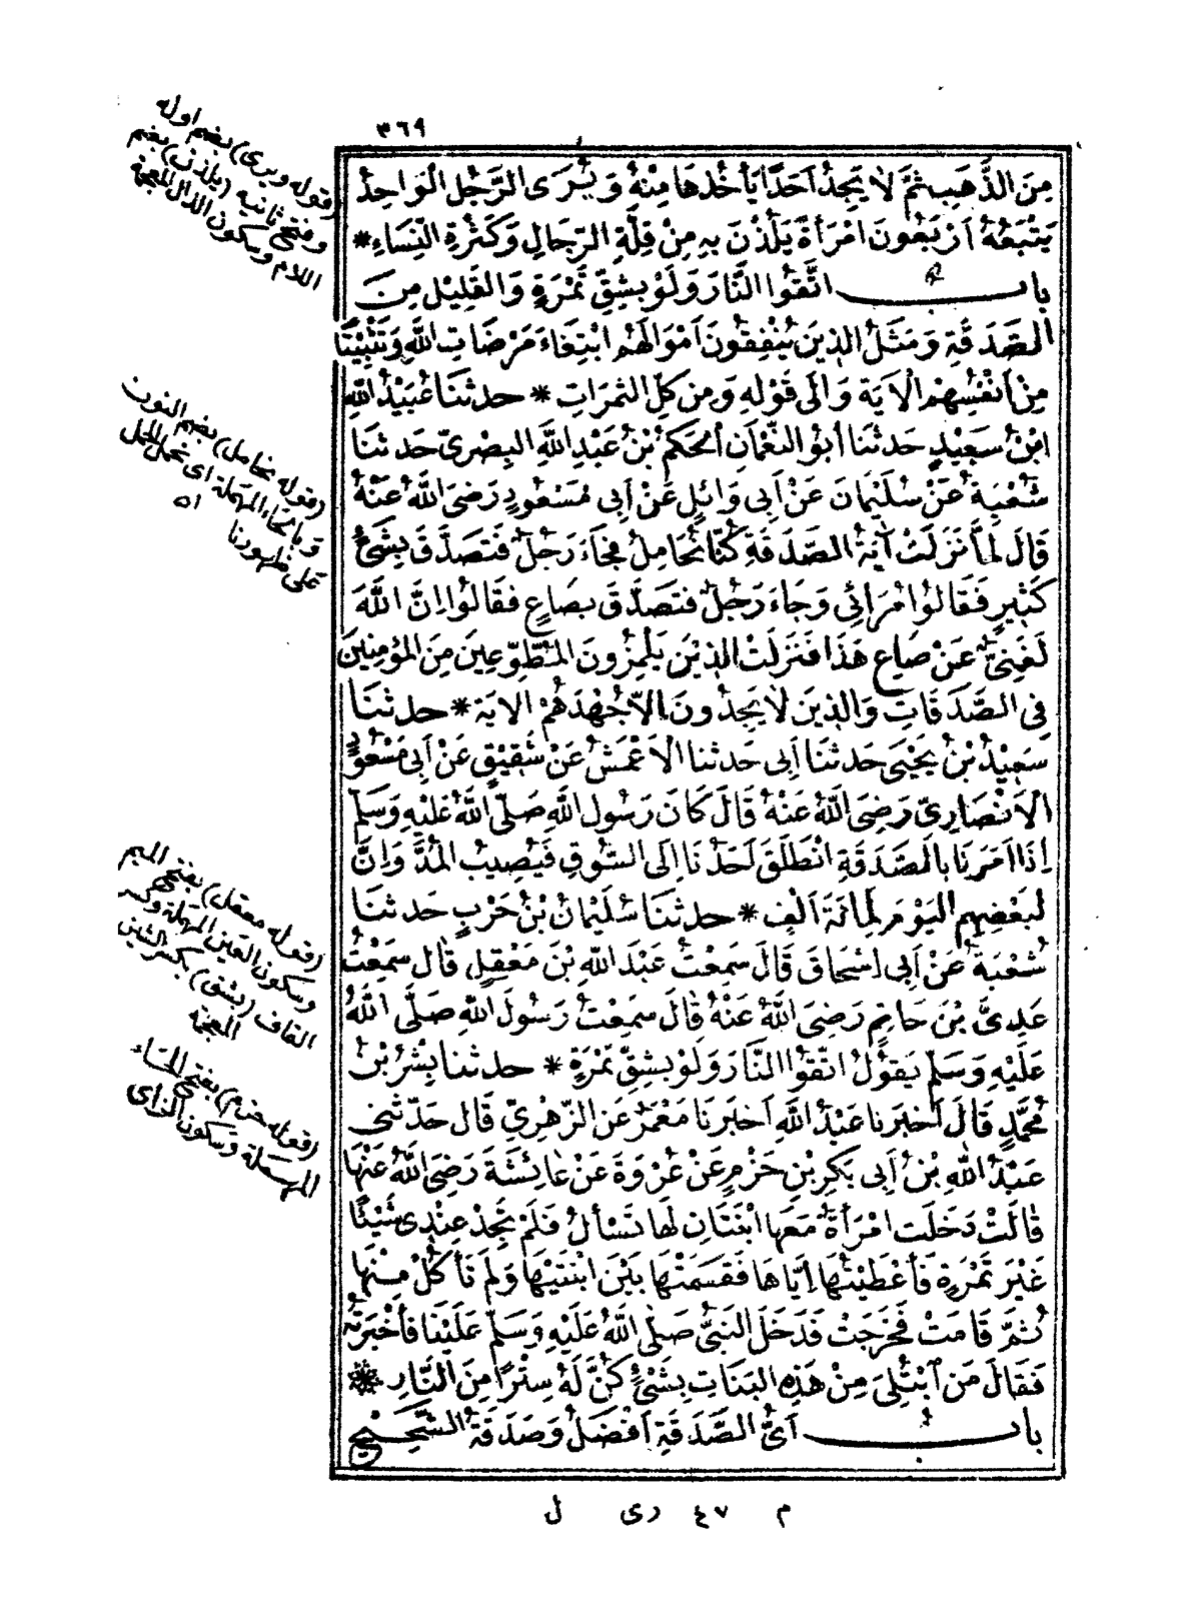 ٣٦٩
مِنَ الذَّهَبِ ثُمَّ لَا يَجِدُ اَحَدًا يَأْخُذُهَا مِنْهُ وَيُرَى الرَّجُلُ الْوَاحِدُ
يَتْبَعُهُ اَرْبَعُونَ امْرَأَةً يَلُذْنَ بِهِ مِنْ قِلَّةِ الرِّجَالِ وَكَثْرَةِ النِّسَاءِ *
باب اتَّقُوا النَّارَ وَلَوْ بِشِقِّ تَمْرَةٍ وَالْقَلِيْلِ مِنَ
الصَّدَقَةِ وَمَثَلُ الذِينَ يُنْفِقُونَ اَمْوَالَهُمُ ابْتِغَاءَ مَرْضَاتِ اللَّهِ وَتَثْبِيْتًا
مِنْ اَنْفُسِهِمْ الْاَيَةَ وَاِلَى قَوْلِهِ وَمِنْ كُلِّ الثَمَرَاتِ * حدثنَا عُبَيْدُ اللَّهِ
ابْنُ سَعِيْدٍ حَدثنَا أَبُو النُّعْمَانِ الحَكَمُ بْنُ عَبْدِ اللَّهِ البِصْرِىّ حَدثنَا
شُعْبَةُ عَنْ سُلَيْمَانَ عَنْ اَبِى وَائِلٍ عَنْ اَبِى مَسْعُودٍ رَضِىَ اللَّهُ عَنْهُ
قَالَ لَمَّا نَزَلَتْ اٰيَةُ الصَّدَقَةِ كُنَّا نُحَامِلُ فَجَاءَ رَجُلٌ فَتَصَدَّقَ بِشَىْءٍ
كَثِيرٍ فَقَالُوا مُرَائِى وَجَاءَ رَجُلٌ فَتَصَدَّقَ بِصَاعٍ فَقَالُوا اِنَّ اللَّهَ
لَغَنِىٌّ عَنْ صَاعِ هَذَا فَنَزَلَتْ الذِيْنَ يَلْمِزُونَ المُطَّوِّعِينَ مِنَ المُؤْمِنِيْنَ
فِى الصَّدَقَاتِ وَالذِينَ لَا يَجِدُونَ اِلَّا جُهْدَهُمْ الاَيَةَ * حدثنَا
سَعِيْدُ بْنُ يَحْيَى حَدثنَا اَبِى حَدثنا الْاَعْمَشُ عَنْ شَقِيْقٍ عَنْ اَبِى مَسْعُودٍ
الْاَنْصَارِىِّ رَضِىَ اللَّهُ عَنْهُ قَالَ كَانَ رَسُولُ اللَّهِ صَلَّى اللَّهُ عَلَيْهِ وَسَلَّمَ
اِذَا اَمَرَنَا بِالصَّدَقَةِ انْطَلَقَ اَحَدُنَا اِلَى السُّوقِ فَيُصِيبُ المُدَّ وَاِنَّ
لِبَعْضِهِمِ اليَوْمَ لَمِائَةَ اَلْفٍ * حدثنَا سُلَيْمَانُ بْنُ حَرْبٍ حَدثنَا
شُعْبَةُ عَنْ اَبِى اِسْحَاقَ قَالَ سَمِعْتُ عَبْدَ اللَّهِ بْنَ مَعْقِلٍ قَالَ سَمِعْتُ
عَدِىَّ بْنَ حَاتِمٍ رَضِىَ اللَّهُ عَنْهُ قَالَ سَمِعْتُ رَسُولَ اللَّهِ صَلَّى اللَّهُ
عَلَيْهِ وَسَلَّمَ يَقُولُ اتَّقُوا النَّارَ وَلَوْ بِشِقِّ تَمْرَةٍ * حدثنا بِشْرُ بْنُ
مُحَمَّدٍ قَالَ اَخبَرنا عَبْدُ اللَّهِ اَخبَرنَا مَعْمَرٌ عَن الزُّهْرِيِّ قَالَ حَدّثَنِى
عَبْدُ اللَّهِ بْنُ اَبِى بَكرِ بْنِ حَزْمٍ عَنْ عُرْوَةَ عَنْ عَائِشَةَ رَضِىَ اللَّهُ عَنْهَا
قَالَتْ دَخَلَت امْرَأَةٌ مَعَهَا ابْنَتَانِ لَهَا تَسْأَلُ فَلَمْ تَجِدْ عِنْدِى شَيْئًا
غَيْرَ تَمْرَةٍ فَأَعْطَيْتُهَا اِيَّاهَا فَقَسَمَتْهَا بَيْنَ ابْنَتَيْهَا وَلَمْ تَأْكُلْ مِنْهَا
ثُمَّ قَامَتْ فَخَرَجَتْ فَدَخَلَ النَبِىُّ صَلَّى اللَّهُ عَلَيْهِ وَسَلَّمَ عَلَيْنَا فَأَخْبَرْتُهُ
فَقَالَ مَن ابْتُلِىَ مِنْ هَذِهِ البَنَاتِ بِشَىْءٍ كُنَّ لَهُ سِتْرًا مِنَ النَّارِ *
باب اَىُّ الصَّدَقَةِ اَفْضَلُ وَصَدَقَةُ الشَّحِيْحِ
(قوله ويرى) بضم اوله
وفتح ثانيه (يلذن) بضم
اللام وسكون الذال المعجمة
(قوله نحامل) بضم النون
وبالحاء المهملة اى نحمل الحمل
على ظهورنا اه
(قوله معقل) بفتح الميم
وسكون العين المهملة وكسر
القاف (بشق) بكسر الشين
المعجمة
(قوله حزم) بفتح الحاء
المهملة وسكون الزاى
م ٤٧ رى ل